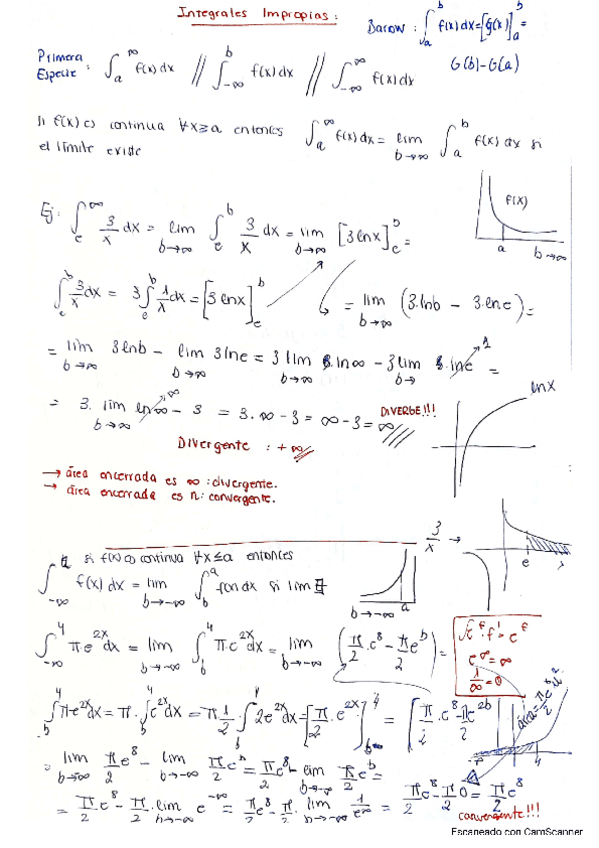 Integrales Impropias:
Barow: ∫_a^b f(x)dx = [G(x)]_a^b =
G(b)-G(a)
Primera Especie: ∫_a^∞ f(x)dx // ∫_-∞^b f(x)dx // ∫_-∞^∞ f(x)dx
si f(x) es continua ∀x≥a entonces ∫_a^∞ f(x)dx = lim b→∞ ∫_a^b f(x) dx si
el límite existe
f(x)
a b→∞
Ej: ∫_e^∞ 3/x dx = lim b→∞ ∫_e^b 3/x dx = lim b→∞ [3lnx]_e^b =
∫_e^b 3/x dx = 3∫_e^b 1/x dx = [3lnx]_e^b = lim b→∞ (3·lnb - 3·lne) =
= lim b→∞ 3lnb - lim b→∞ 3lne = 3 lim b→∞ 3·ln∞ - 3 lim b→ 3·lne 1 =
= 3· lim b→∞ ln∞ ∞ - 3 = 3·∞-3 = ∞-3 = ∞ DIVERGE!!!
lnx
Divergente: +∞
→ área encerrada es ∞: divergente.
→ área encerrada es n: convergente.
3/x →
e
si f(x) es continua ∀x≤a entonces
∫_-∞^a f(x) dx = lim b→-∞ ∫_b^a f(x)dx si lim ∃
b→-∞ a
∫_-∞^4 π·e^2x dx = lim b→-∞ ∫_b^4 π·e^2x dx = lim b→-∞ (π/2·e^8 - π/2 e^b) =
e^f·f' = e^f
e^∞ = ∞
1/∞ = 0
∫_b^4 π·e^2x dx = π·∫_b^4 e^2x dx = π·1/2 ∫_b^4 2e^2x dx = [π/2·e^2x]_b^4 = [π/2·e^8 - πe^2b
4
= lim b→∞ π/2 e^8 - lim b→-∞ π/2 e^b = π/2 e^8 - lim b→-∞ π/2 e^b =
= π/2·e^8 - π/2·lim b→-∞ e^-∞ = π/2 e^8 - π/2· lim b→-∞ 1/e^∞ = π/2 e^8 - π/2 0 = π/2 e^8
convergente!!!
Escaneado con CamScanner